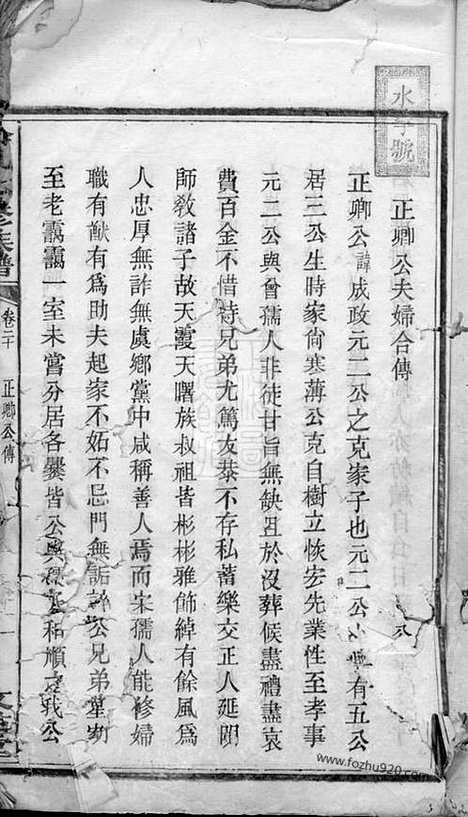 水字號
正卿公夫婦合傳
正卿公諱成政元二公之克家子也元二公 有五公
居三公生時家尙寒薄公克自樹立恢宏先業性至孝事
元二公與曾孺人非徒甘旨無缺且於沒葬候盡禮盡哀
費百金不惜待兄弟尤篤友恭不存私蓄樂交正人延明
師教諸子故天霞天曙族叔祖皆彬彬雅飾綽有餘風爲
人忠厚無詐無虞鄉黨中咸稱善人焉而宋孺人能修婦
職有猷有爲助夫起家不妬不忌門無詬誶公兄弟 
至老靄靄一室未嘗分居各爨皆公與 和順 公
族譜
卷三十 正卿公傳
www.fozhu920.com